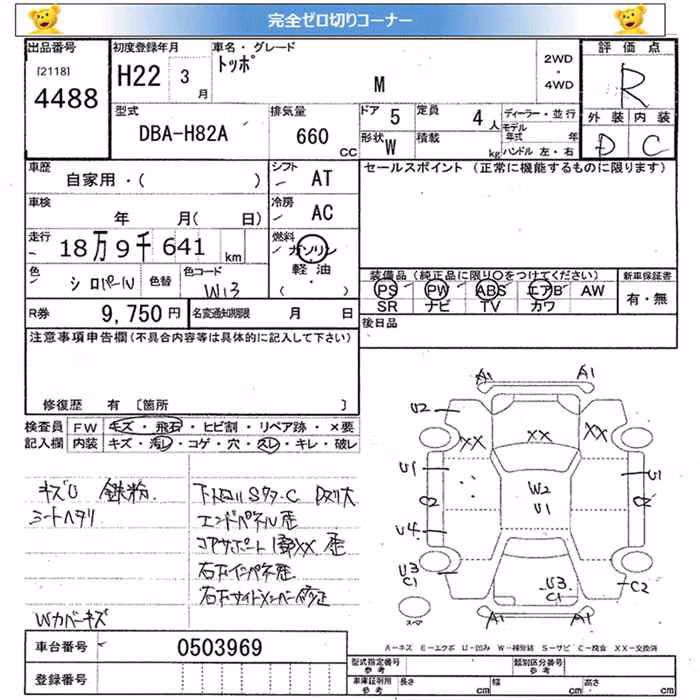 完全ゼロ切りコーナー
出品番号 初度登録年月 車名・グレード 評価点
[2118] トッポ 2WD
4488 H22 3月 M ・ 4WD R
型式 排気量 ドア 5 定員 4人 ディーラー・並行 外装 内装
DBA-H82A 660 CC 形状 W 積載 kg モデル年式 年 D C
ハンドル 左・右
車歴 シフト セールスポイント (正常に機能するものに限ります)
自家用・( ) AT
車検 冷房
年 月( 日) AC
走行 燃料
18万9千641 km ガソリン
軽油
( )
色 シロパール 色替 色コード W13
装備品 (純正品に限り○をつけてください) 新車保証書
PS PW ABS エアB AW 有・無
SR ナビ TV カワ
R券 9,750円 名変通知期限 月 日 後日品
注意事項申告欄(不具合内容等は具体的に記入して下さい)
修復歴 有 〔箇所 〕
検査員 FW キズ・飛石・ヒビ割・リペア跡・×要
記入欄 内装 キズ・汚レ・コゲ・穴・スレ・キレ・破レ
鉄粉
シートヘタリ
エンドパネル歴
コアサポート 1部XX 歴
右下インパネ歴
Wカバーキズ
A1 A1
U2 XX XX XX
U1 U1
C2 W2 C2
U1
U4
U3 C2
C1 U3
C1
A1 A1
スマ
A－キズ E－エクボ U－凹み W－補修跡 S－サビ C－腐食 XX－交換済
車台番号 0503969
登録番号
型式指定番号 参考 類別区分番号 参考
車庫証明用 参考 長さ cm 幅 cm 高さ cm